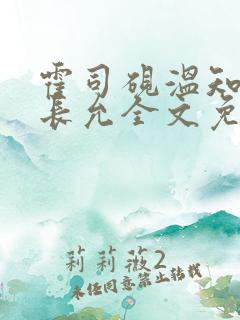 霍司砚温知
长允全文免
莉莉薇2
未经同意禁止转载